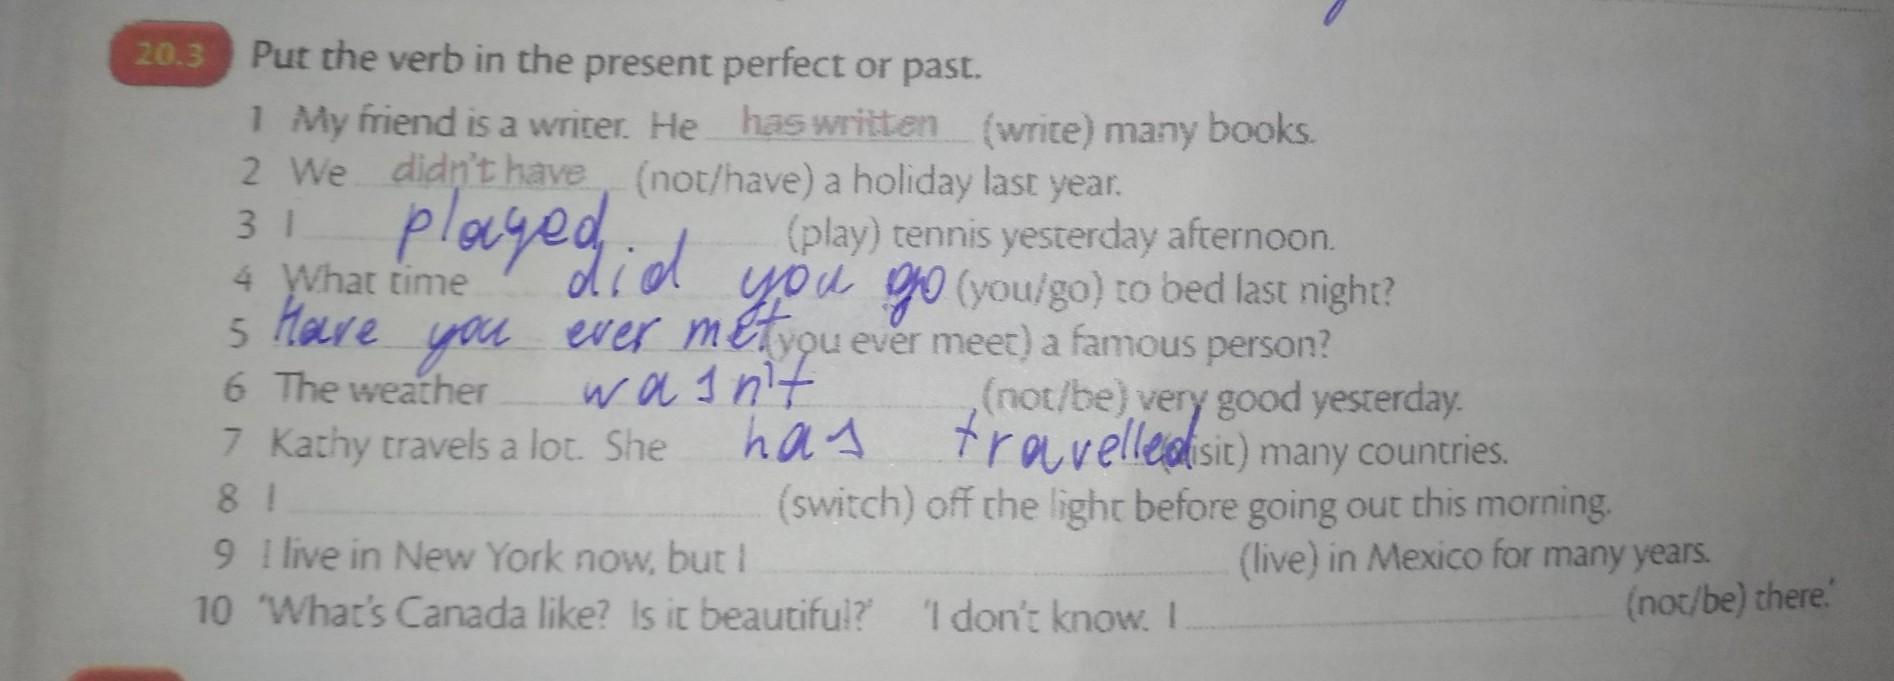 20.3 Put the verb in the present perfect or past.
1 My friend is a writer. He has written (write) many books.
2 We didn't have (not/have) a holiday last year.
3 I played (play) tennis yesterday afternoon.
4 What time did you go (you/go) to bed last night?
5 Have you ever met you ever meet) a famous person?
6 The weather wasn't (not/be) very good yesterday.
7 Kathy travels a lot. She has travelled isit) many countries.
8 I (switch) off the light before going out this morning.
9 I live in New York now, but I (live) in Mexico for many years.
10 'What's Canada like? Is it beautiful?' 'I don't know. I (not/be) there.'